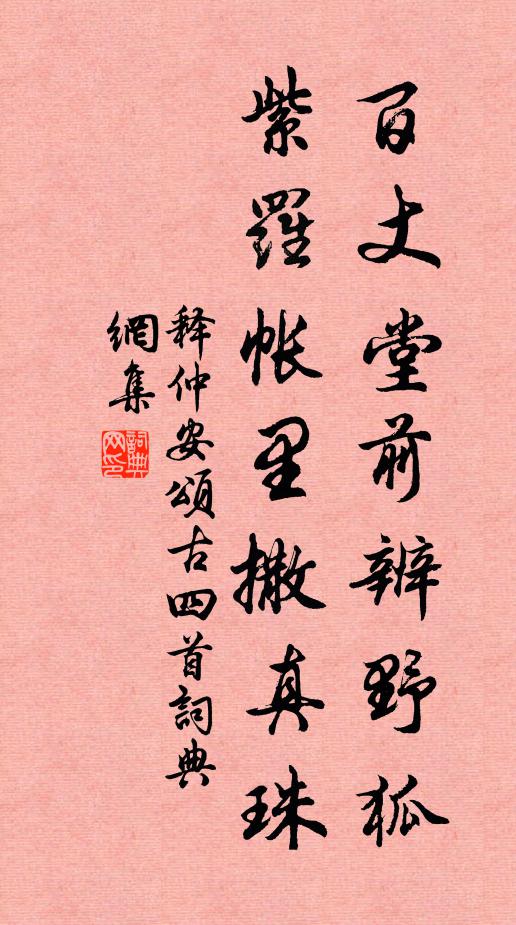 百丈堂前辨野狐
紫羅帐里撒真珠
释仲安頌古四首詞典
網集
詞典網印